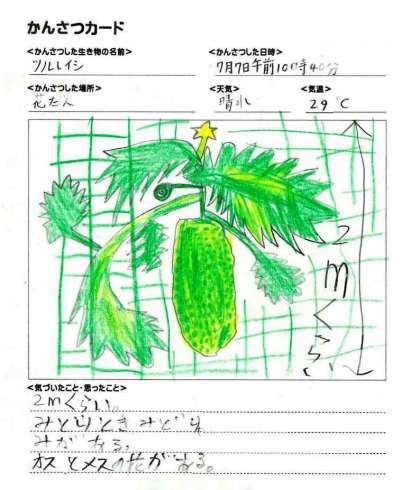 かんさつカード
<かんさつした生き物の名前>
ツルレイシ
<かんさつした日時>
7月7日午前10時40分
<かんさつした場所>
花だん
<天気>
晴れ
<気温>
29℃
2mくらい
<気づいたこと・思ったこと>
2mくらい。
みどりときみどり
みがなる。
オスとメスの花がある。